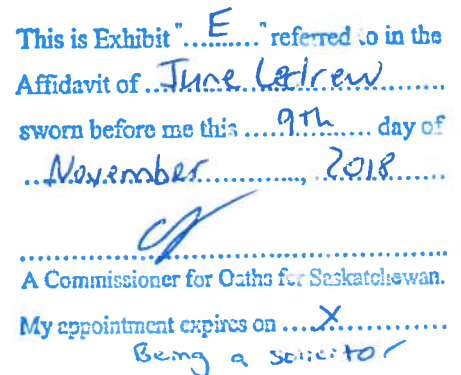 This is Exhibit "....E....." referred to in the
Affidavit of ...June Ledrew...
sworn before me this .....9th......... day of
...November..............., .2018......
A Commissioner for Oaths for Saskatchewan.
My appointment expires on .....X...............
Being a solicitor